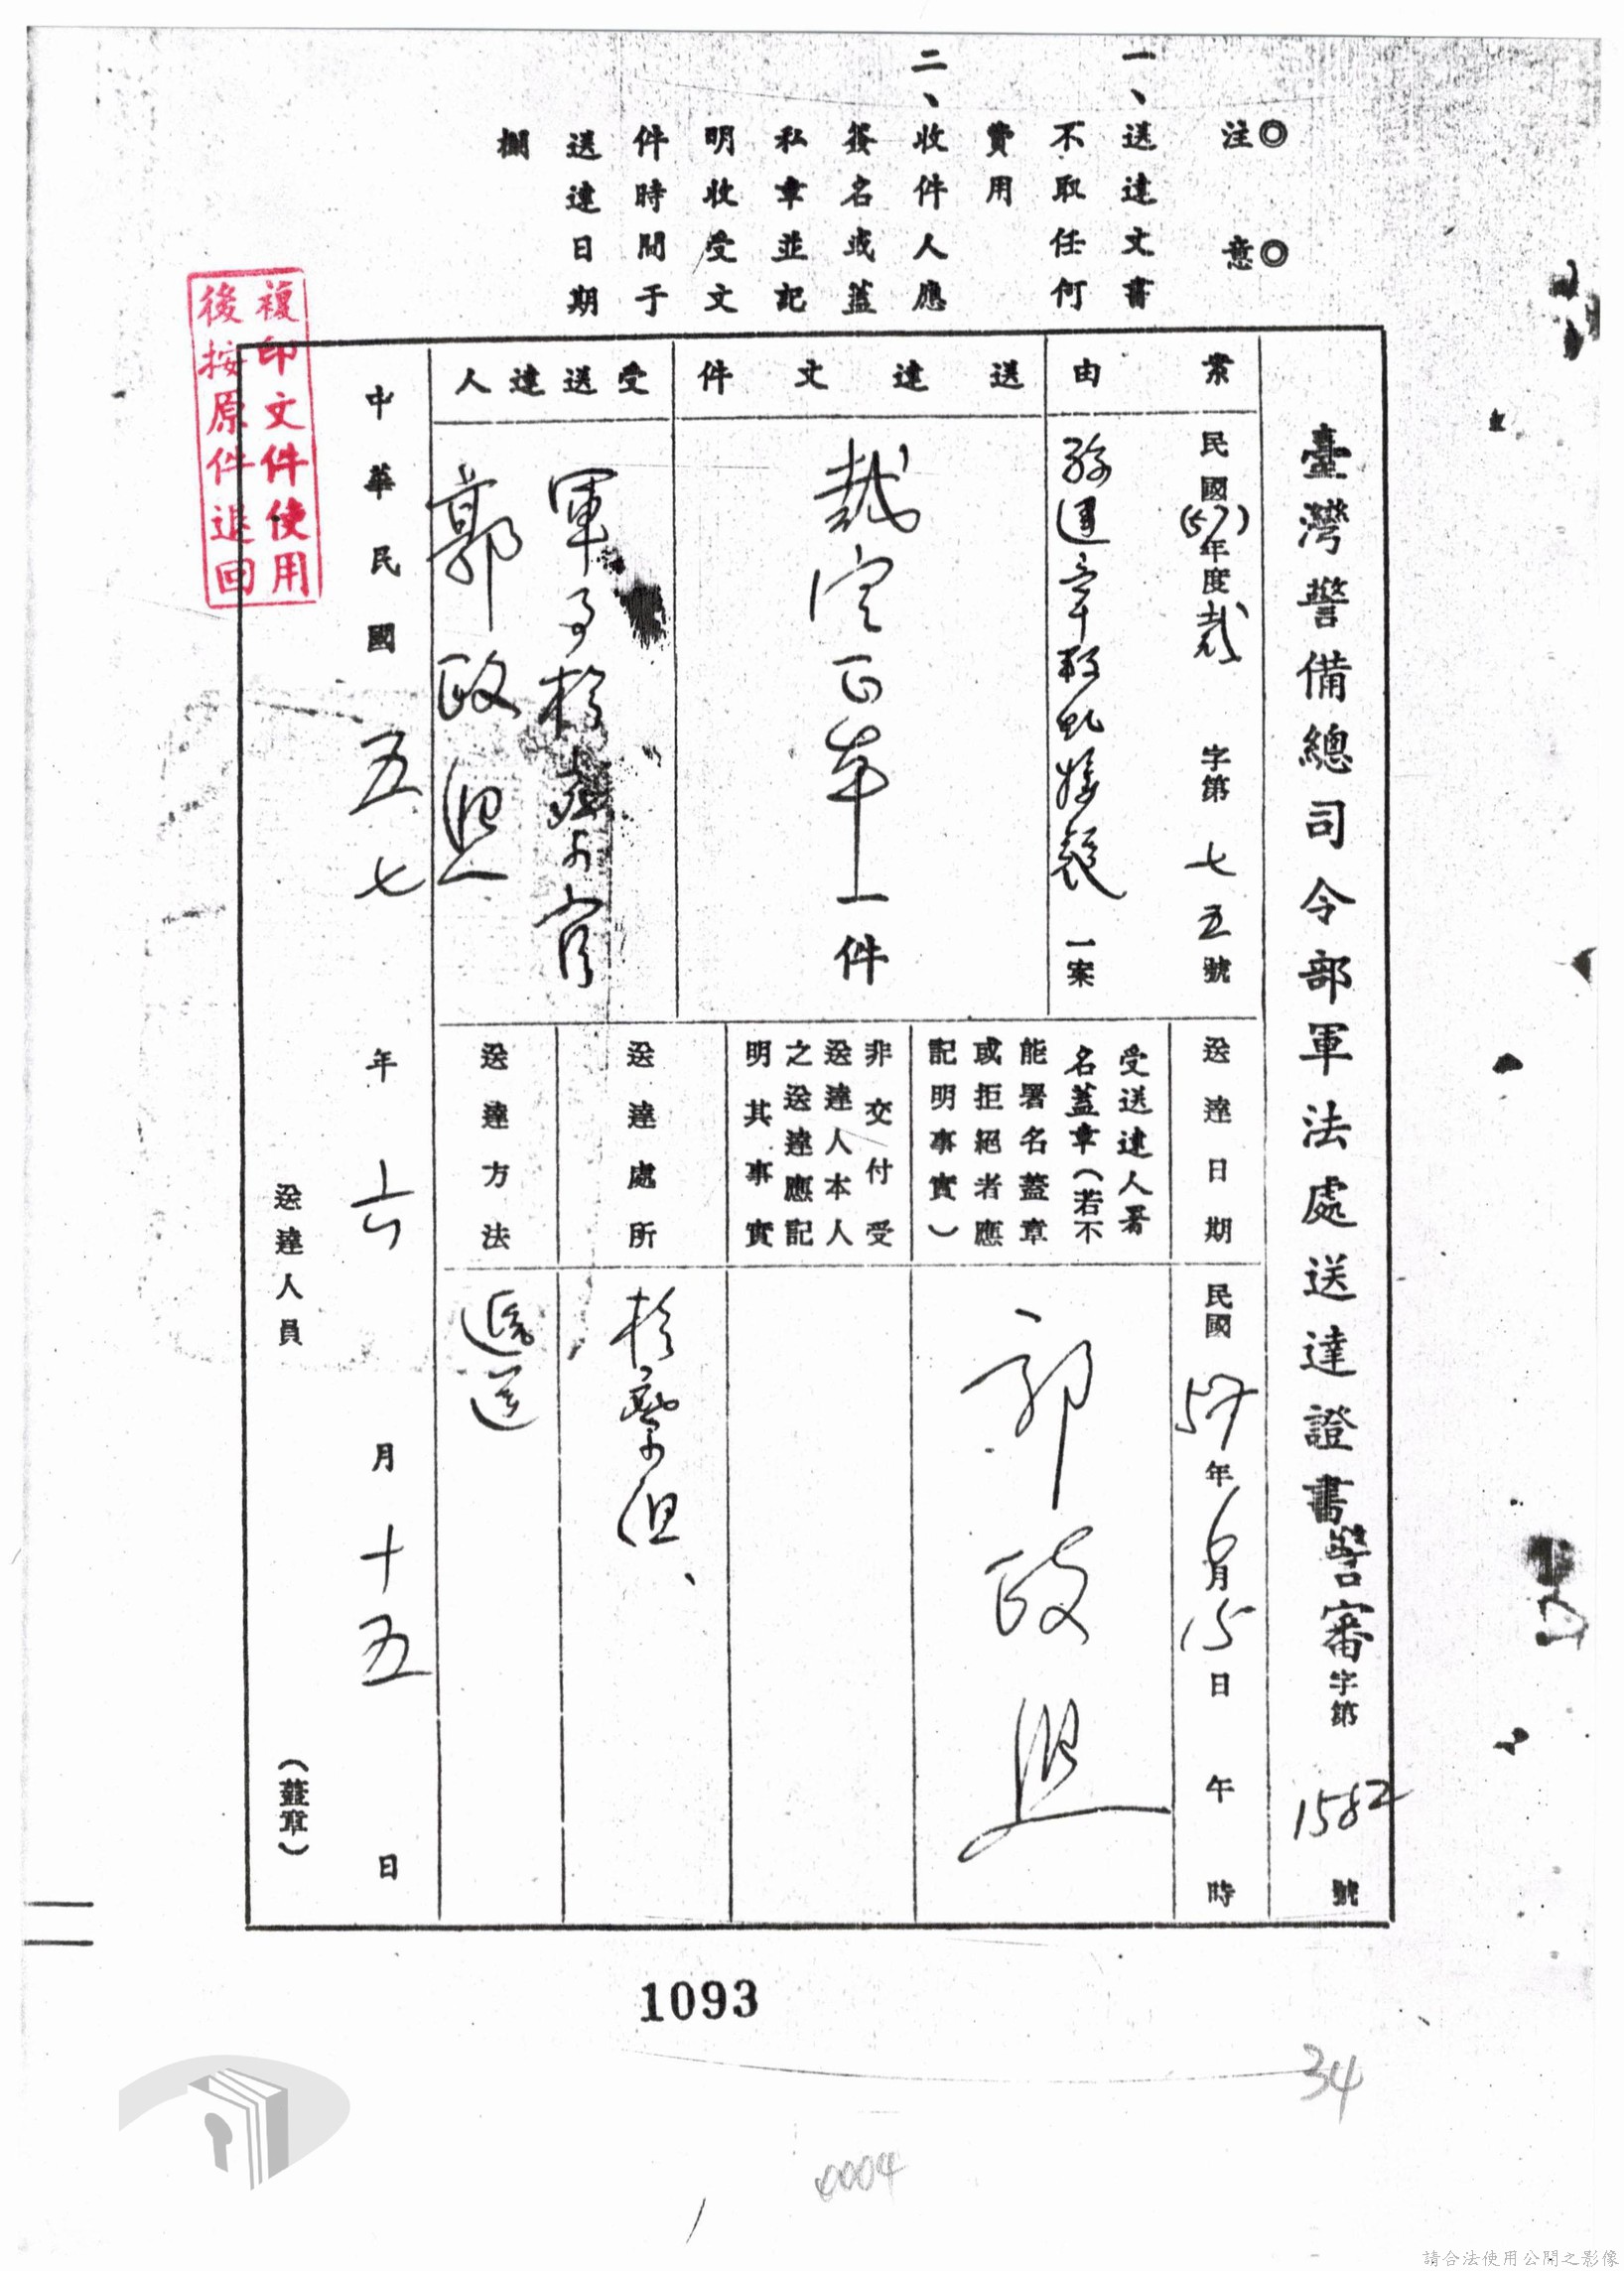 ◎注意◎
一、送達文書
不取任何
費用
二、收件人應
簽名或蓋
私章並記
明收受文
件時間于
送達日期
欄
複印文件使用
後按原件退回
臺灣警備總司令部軍法處送達證書
警審字第1582號
案由
民國(57)年度裁字第七五號
一案
送達文件
裁定正本一件
受送達人
軍事檢察官
郭政熙
送達日期
民國57年6月15日午時
受送達人署
名蓋章(若不
能署名蓋章
或拒絕者應
記明事實)
郭政熙
非交付受
送達人本人
之送達應記
明其事實
送達處所
檢察組
送達方法
遞送
中華民國五七年六月十五日
送達人員(蓋章)
1093
34
0004
請合法使用公開之影像